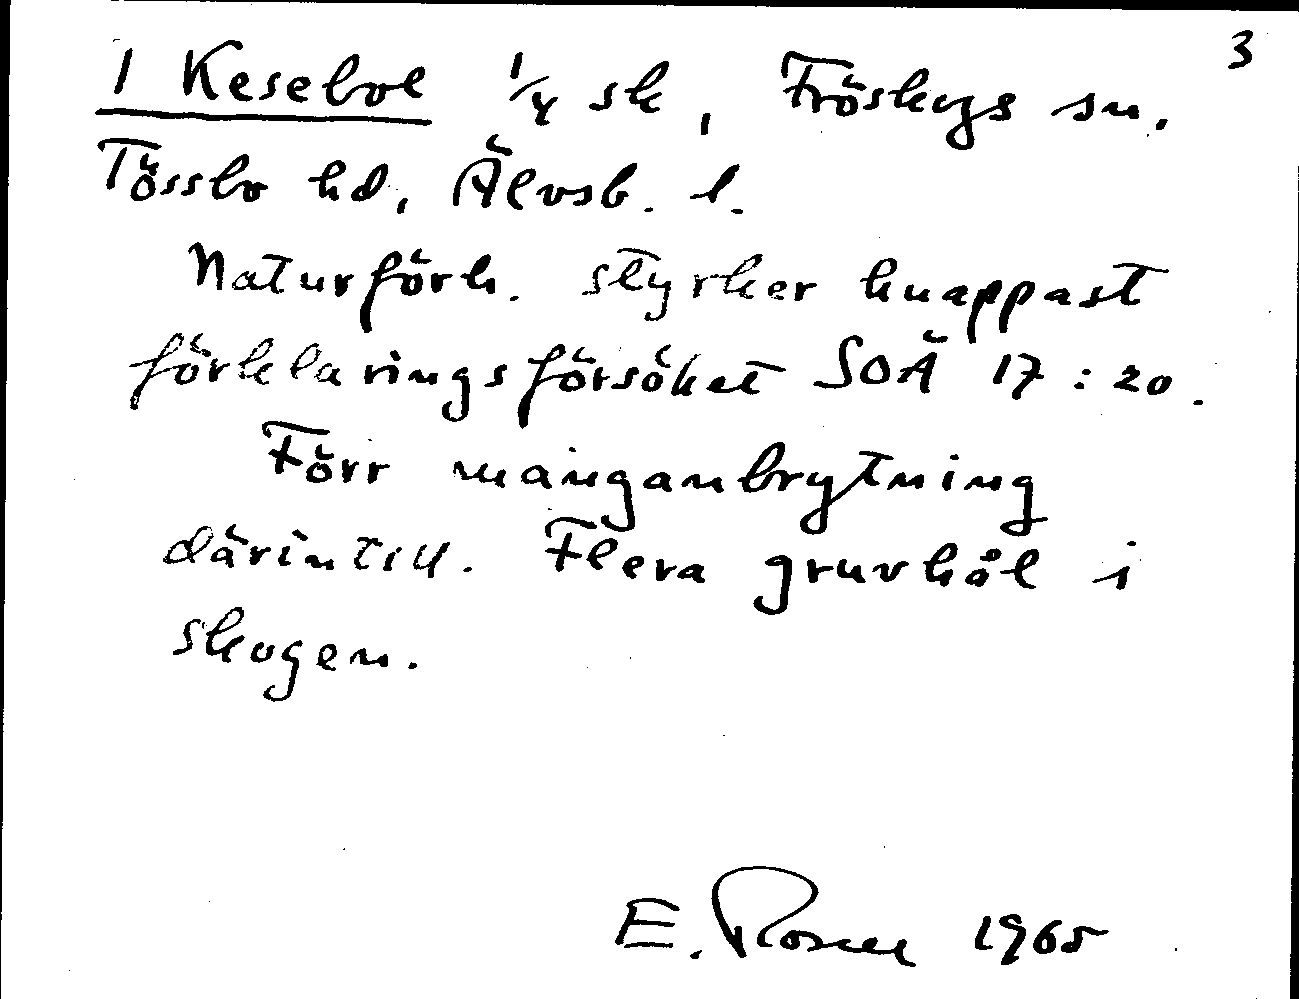 3
1 Kesebol 1/4 sk, Fröskogs sn.
Tössbo hd, Älvsb. l.
Naturförh. styrker knappast
förklaringsförsöket SOÄ 17:20.
Förr manganbrytning
därintill. Flera gruvhål i
skogen.
E. Rosell 1965